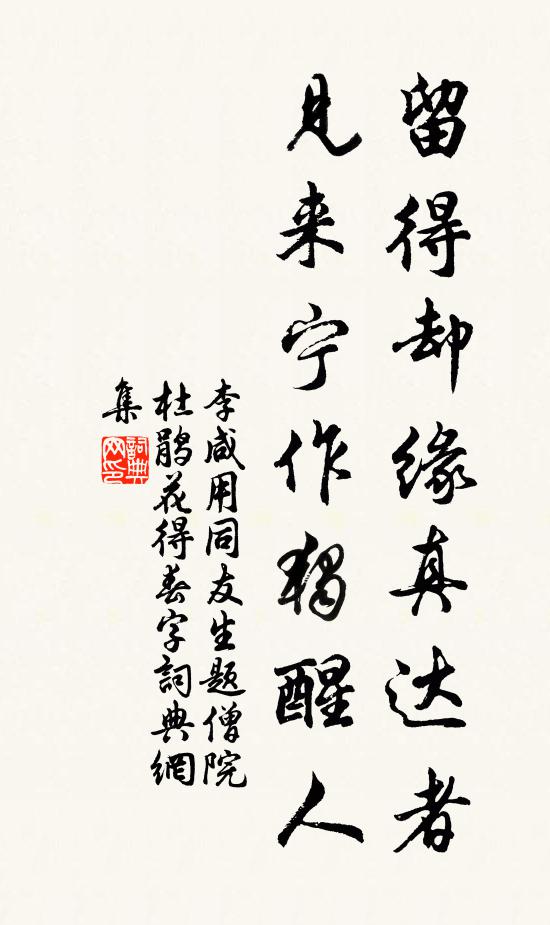 留得却缘真达者
見来宁作独醒人
李咸用同友生题僧院
杜鹃花得春字詞典網
集
詞典
网印